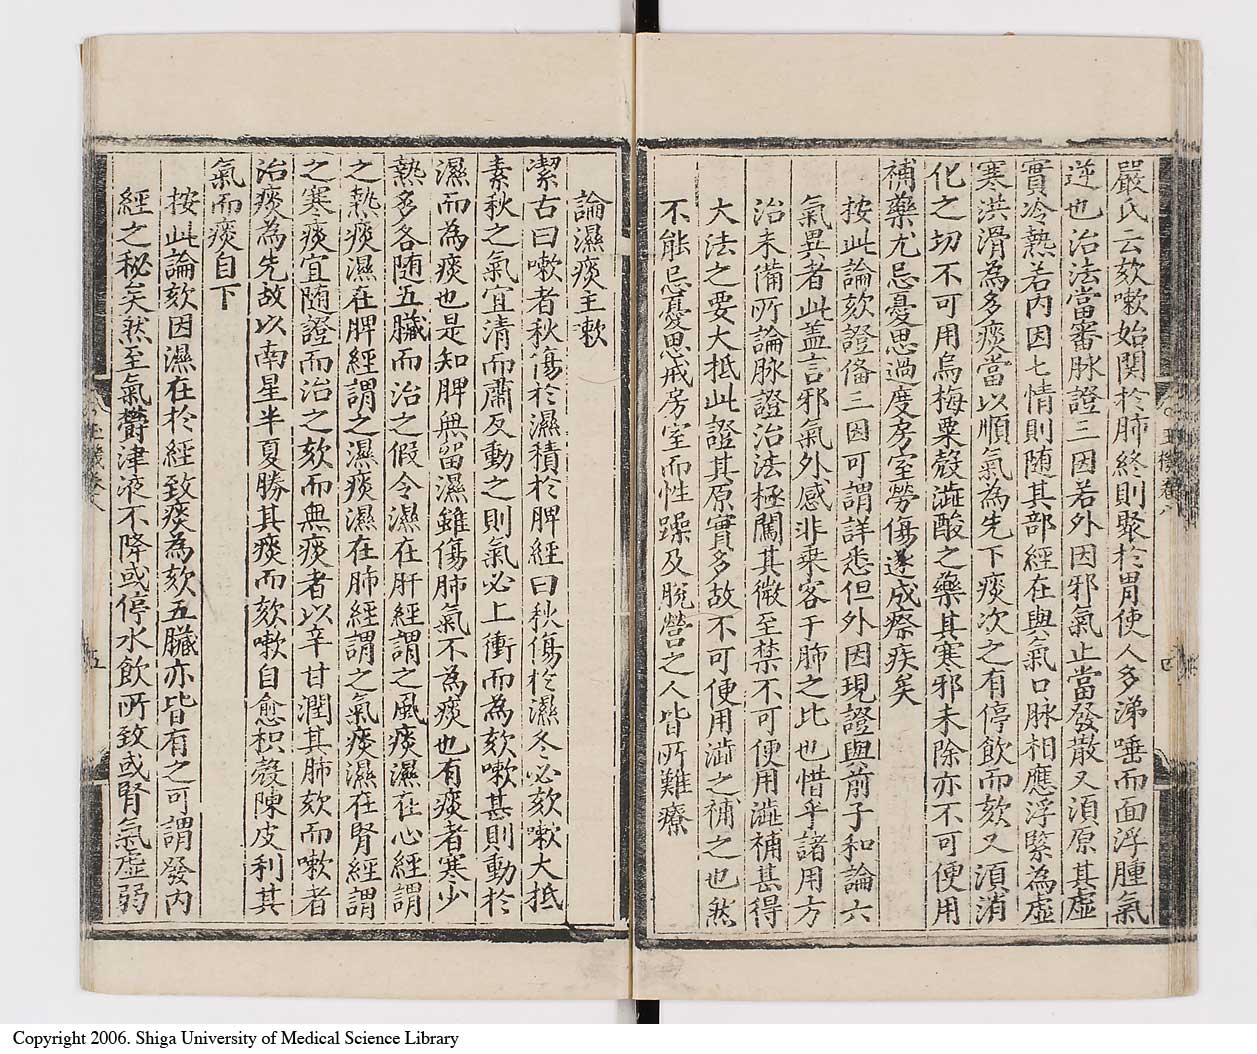 嚴氏云欬嗽始関於肺終則聚於胃使人多涕唾而面浮腫氣
逆也治法當審脉證三因若外因邪氣止當發散又湏原其虛
實冷熱若内因七情則随其部經在與氣口脉相應浮緊為虛
寒洪滑為多痰當以順氣為先下痰次之有停飲而欬又湏消
化之切不可用烏梅粟殻澁酸之藥其寒邪未除亦不可便用
補藥尤忌憂思過度房室勞傷遂成瘵疾矣
按此論欬證俻三因可謂詳悉但外因現證與前子和論六
氣異者此盖言邪氣外感非乗客于肺之比也惜乎諸用方
治未備所論脉證治法極闗其微至禁不可便用澁補甚得
大法之要大抵此證其原實多故不可便用澁之補之也然
不能忌憂思戒房室而性躁及脫營之人皆所難療
論濕痰主欶
潔古曰嗽者秋傷於濕積於脾經曰秋傷於濕冬必欬嗽大抵
素秋之氣宜清而肅反動之則氣必上衝而為欬嗽甚則動於
濕而為痰也是知脾無留濕雖傷肺氣不為痰也有痰者寒少
熱多各随五臟而治之假令濕在肝經謂之風痰濕在心經謂
之熱痰濕在脾經謂之濕痰濕在肺經謂之氣痰濕在腎經謂
之寒痰宜随證而治之欬而無痰者以辛甘潤其肺欬而嗽者
治痰為先故以南星半夏勝其痰而欬嗽自愈枳殻陳皮利其
氣而痰自下
按此論欬因濕在於經致痰為欬五臟亦皆有之可謂發内
經之秘矣然至氣欝津液不降或停水飲所致或腎氣虛弱
Copyright 2006. Shiga University of Medical Science Library